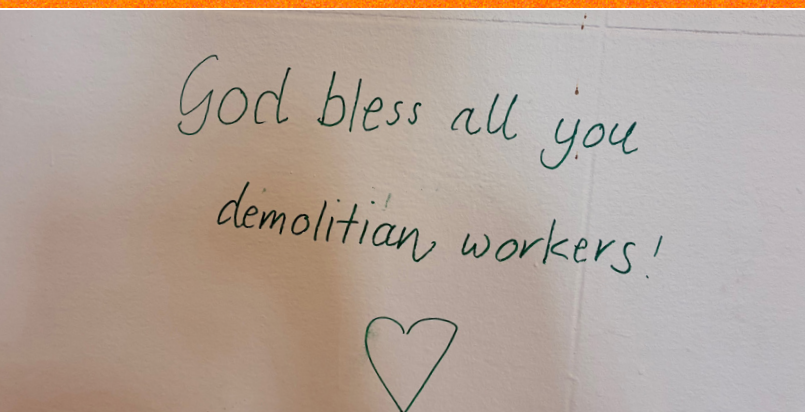 God bless all you
demolitian workers!